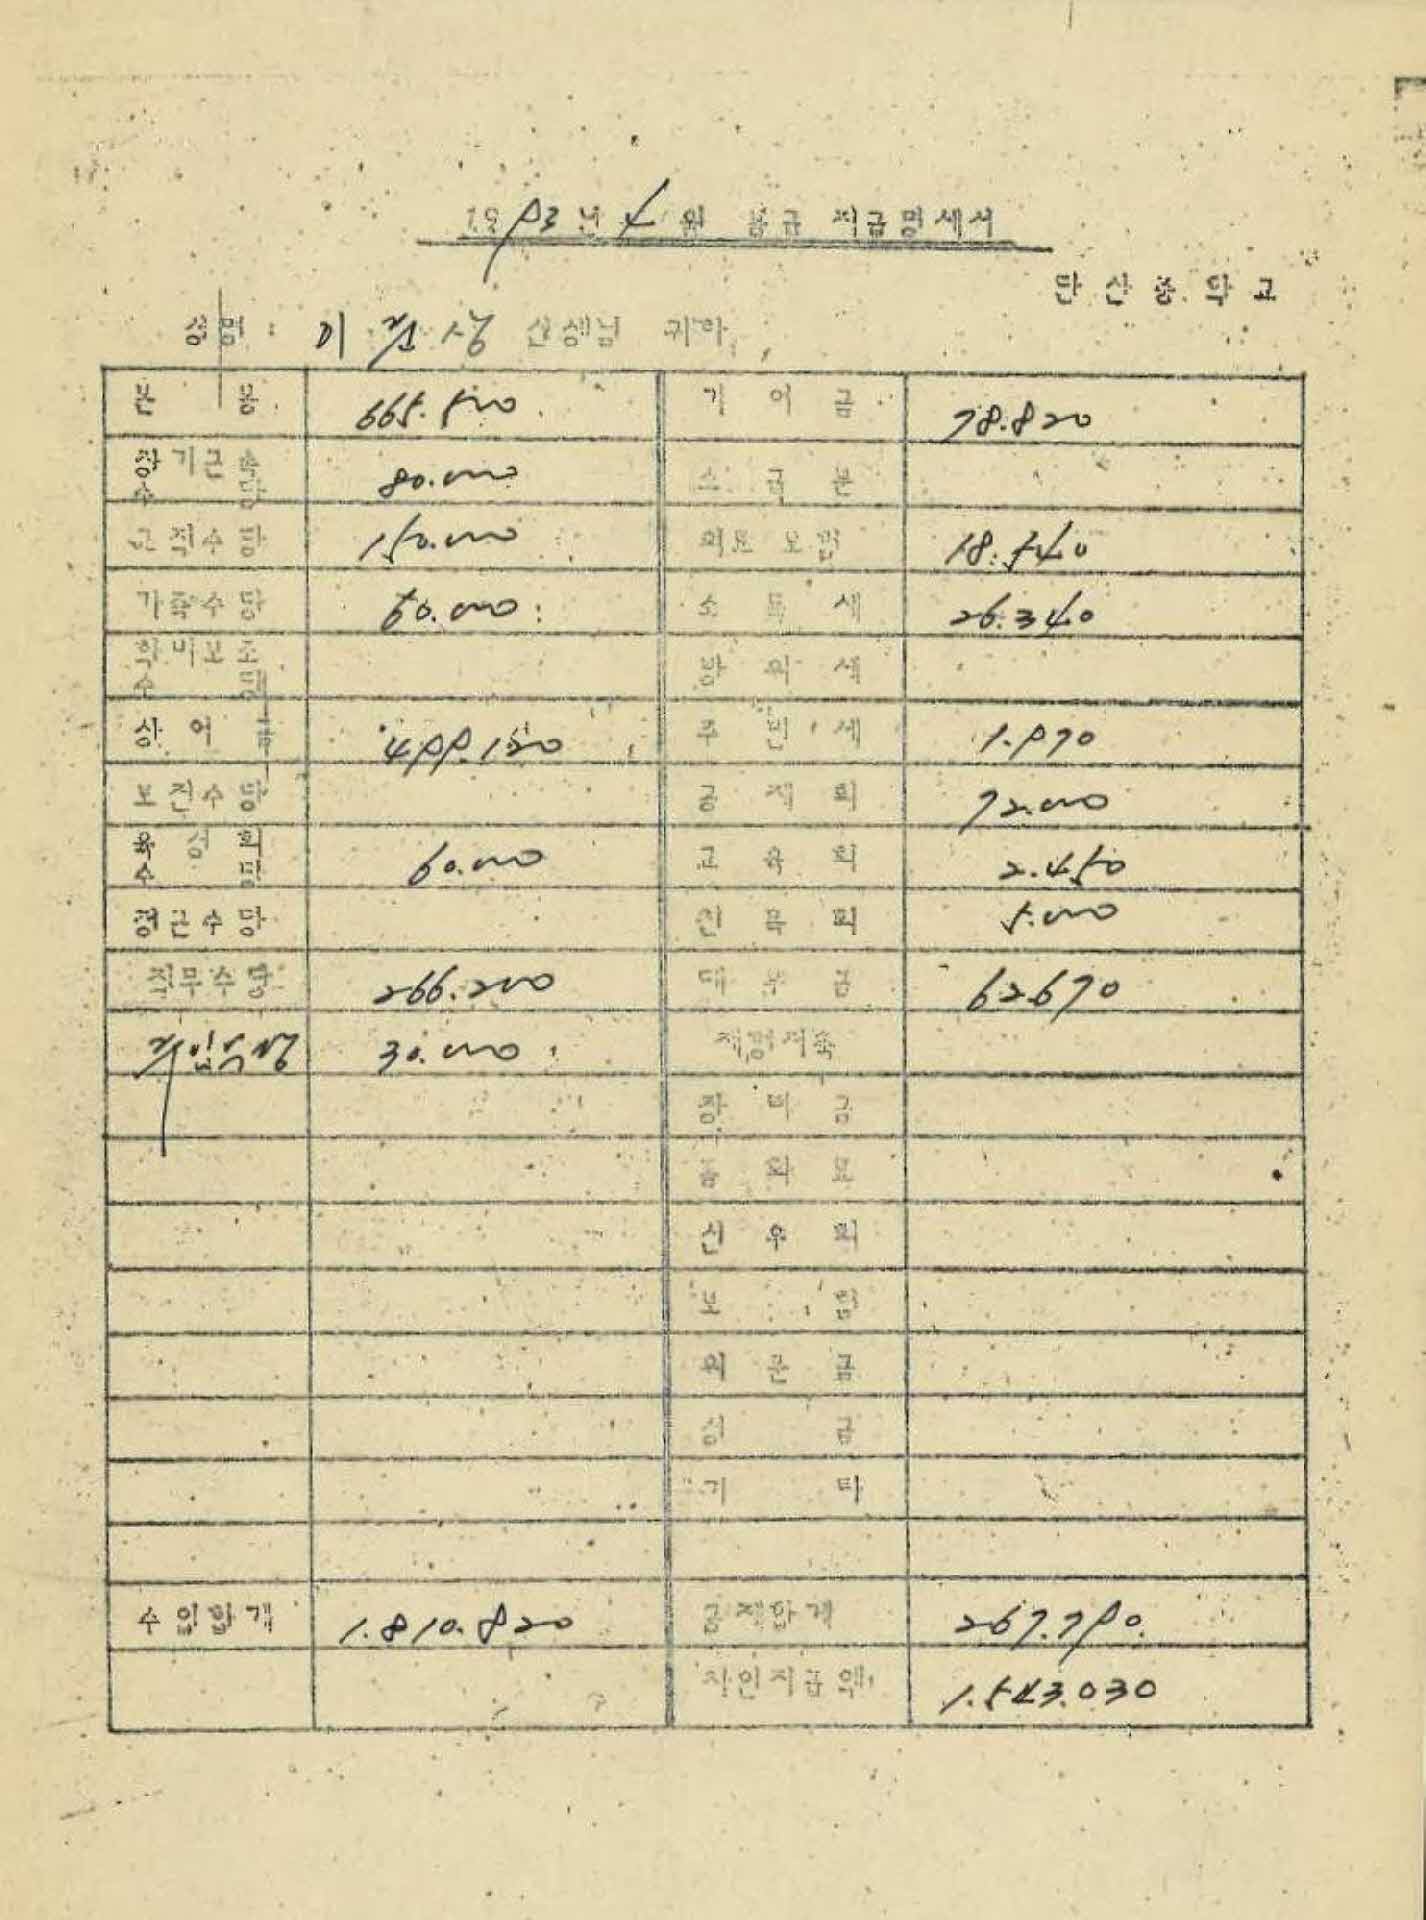 1993년 4월 봉급 지급명세서
단산중학교
성명: 이 선생님 귀하
본 봉 665.500 기여금 78.820
장기근속수당 80.000 소급분
교직수당 150.000 의료보험 18.540
가족수당 60.000 소득세 26.340
학비보조수당 방위세
상여금 499.120 주민세 1.970
보전수당 공제회 72.000
육성회수당 60.000 교육회 2.450
정근수당 친목회 5.000
직무수당 266.200 대부금 62.670
주임수당 30.000 재형저축
신우회
보험
기타
수입합계 1.810.820 공제합계 267.790
차인지급액 1.543.030